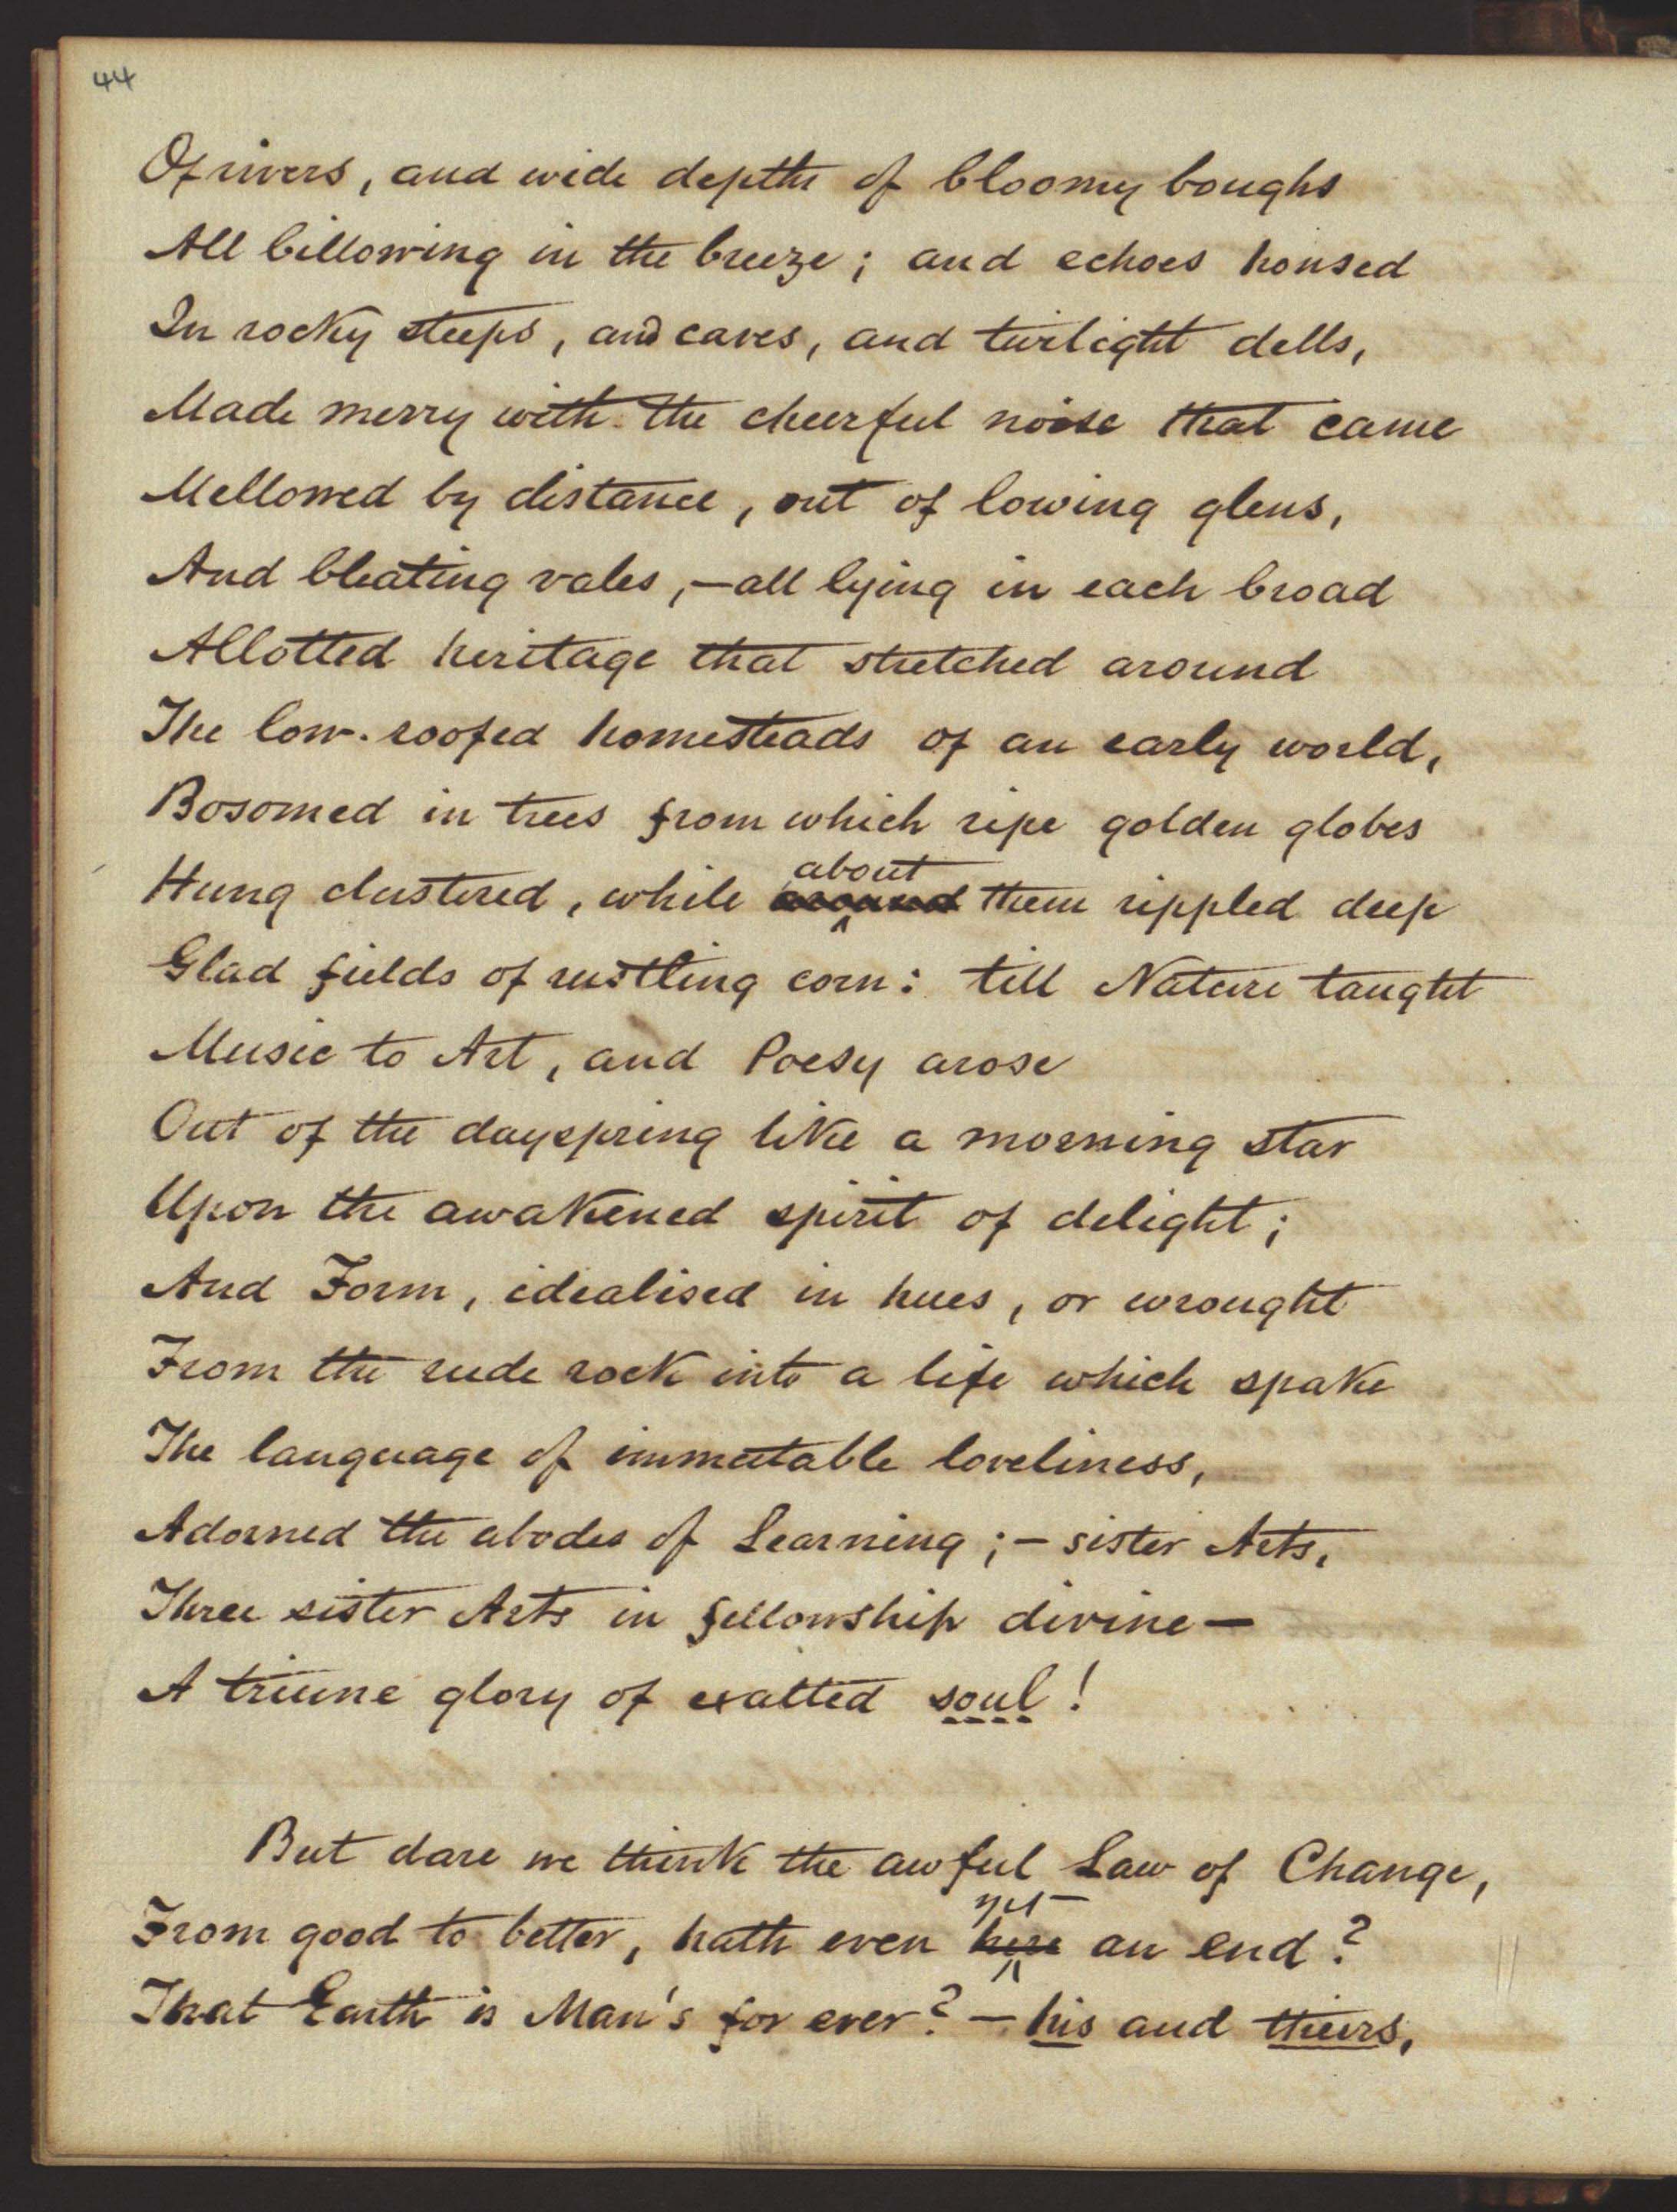 44
Of rivers, and wide depths of bloomy boughs
All billowing in the breeze; and echoes housed
In rocky steeps, and caves, and twilight dells,
Made merry with the cheerful noise that came
Mellowed by distance, out of lowing glens,
And bleating vales,—all lying in each broad
Allotted heritage that stretched around
The low-roofed homesteads of an early world,
Bosomed in trees from which ripe golden globes
about
Hung clustered, while around them rippled deep
Glad fields of rustling corn: till Nature taught
Music to Art, and Poesy arose
Out of the dayspring like a morning star
Upon the awakened spirit of delight;
And Form, idealised in hues, or wrought
From the rude rock into a life which spake
The language of immutable loveliness,
Adorned the abodes of Learning;— sister Arts,
Three sister Arts in fellowship divine—
A triune glory of exalted soul!
But dare we think the awful Law of Change,
yet
From good to better, hath even here an end?
That Earth is Man's for ever?—his and theirs,